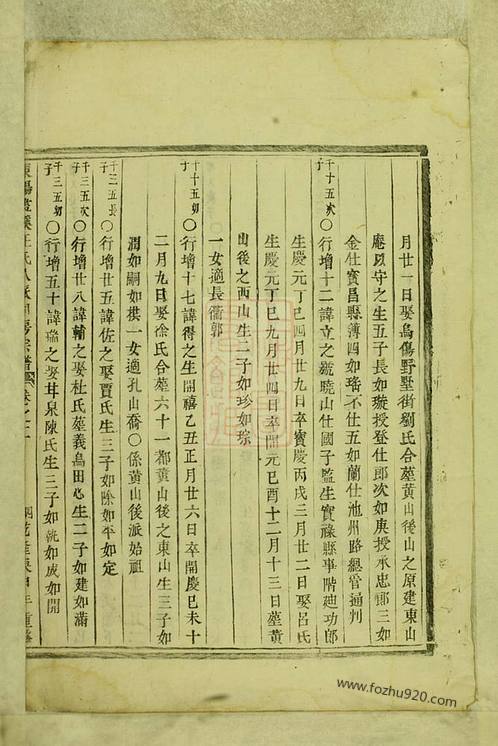 月廿一日娶烏傷野墅街劉氏合塟黄山後山之原建東山
庵以守之生五子長如璇授登仕郎次如庚授承忠郎三如
金仕寳昌縣薄四如瑎不仕五如蘭仕池州路總管通判
千十五次子〇行增十二諱立之號曉山仕國子監生實祿縣事階廸功郎
生慶元丁巳四月廿九日卒寳慶丙戌三月廿二日娶呂氏
生慶元丁巳九月廿四日卒開元己酉十二月十三日塟黄
山後之西山生二子如珍如琮
一女適長衢郭
十十五幼子〇行增十七諱得之生開禧乙丑正月廿六日卒開慶己未十
二月九日娶徐氏合塟六十一都黄山後之東山生三子如
潤如嗣如㳟一女適孔山喬〇係黄山後派始祖
十三五長子〇行增廿五諱佐之娶賈氏生三子如除如平如定
千三五次子〇行增廿八諱輔之娶杜氏塟義烏田心生二子如建如滿
千三五幼子〇行增五十諱瑞之娶苷泉陳氏生三子如就如成如開
東陽 王氏 宗譜 卷之二 庚申年重修
www.fozhu920.com